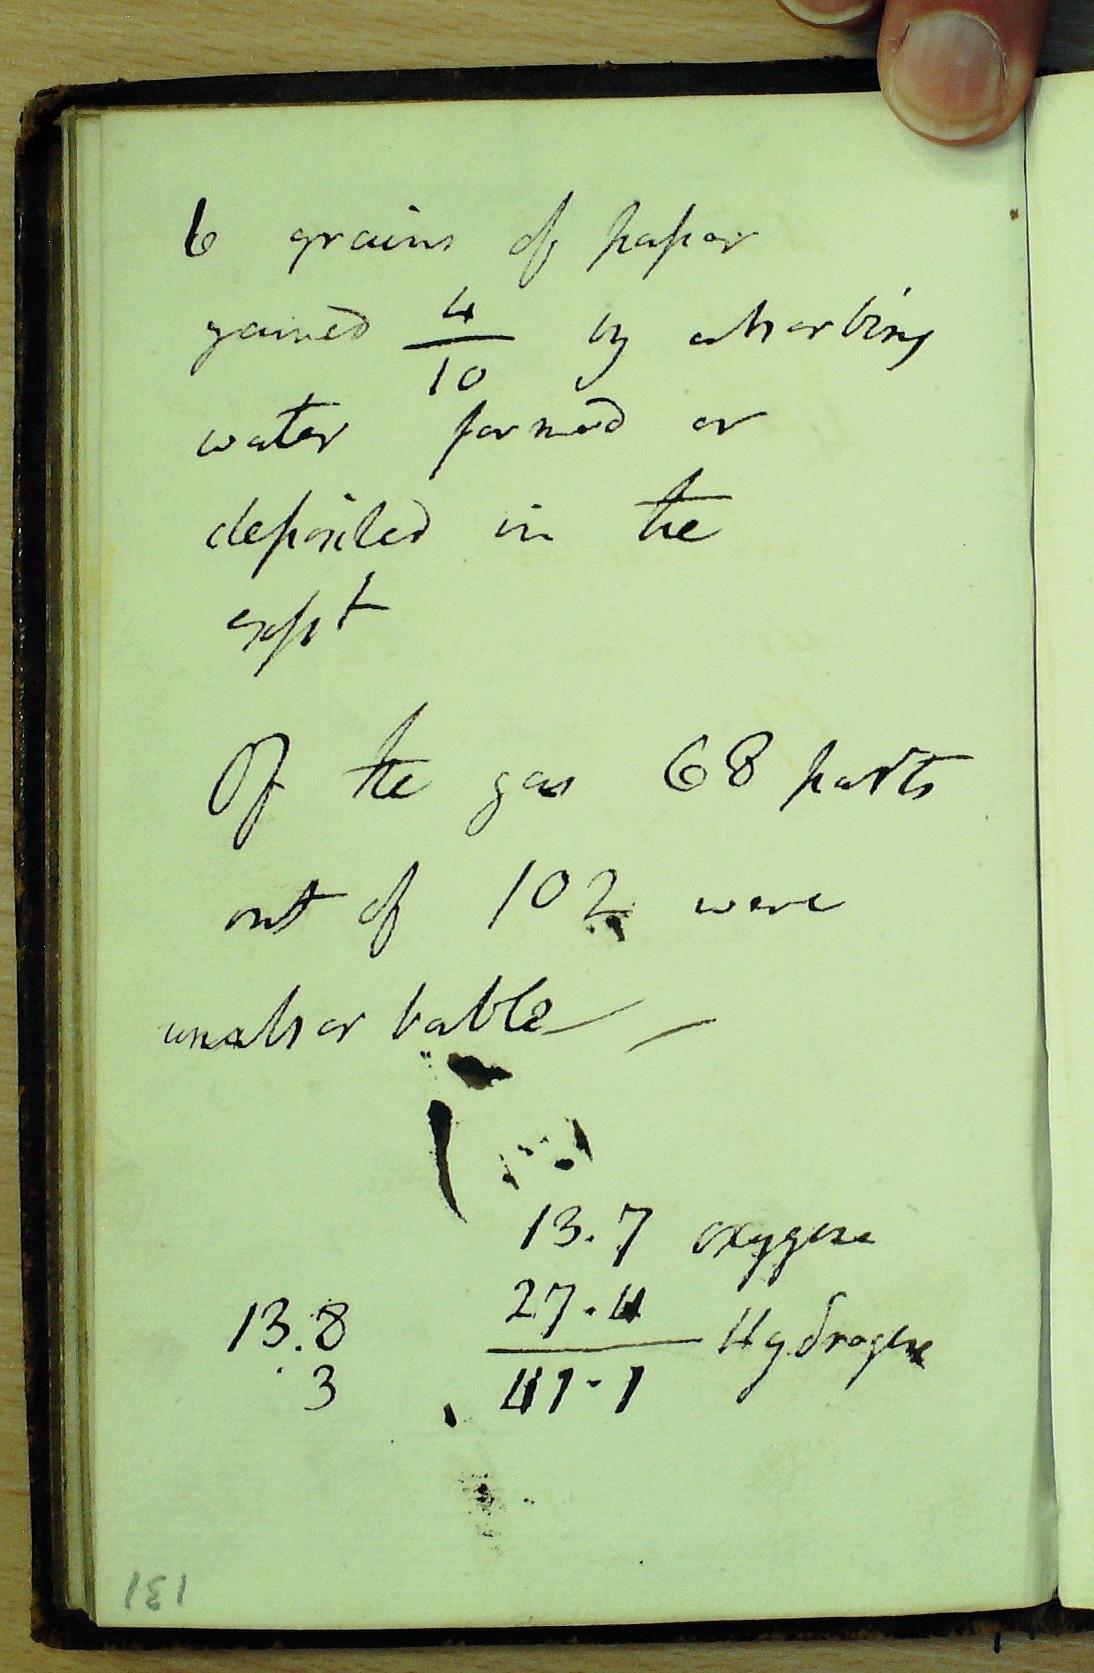 131
6 grains of paper
gained 4/10 by absorbing
water formed or
deposited in the
expt
Of the gas 68 parts
out of 102 were
unabsorbable —
13.7 oxygene
27.4 Hydrogene
41.1
13.8
.3